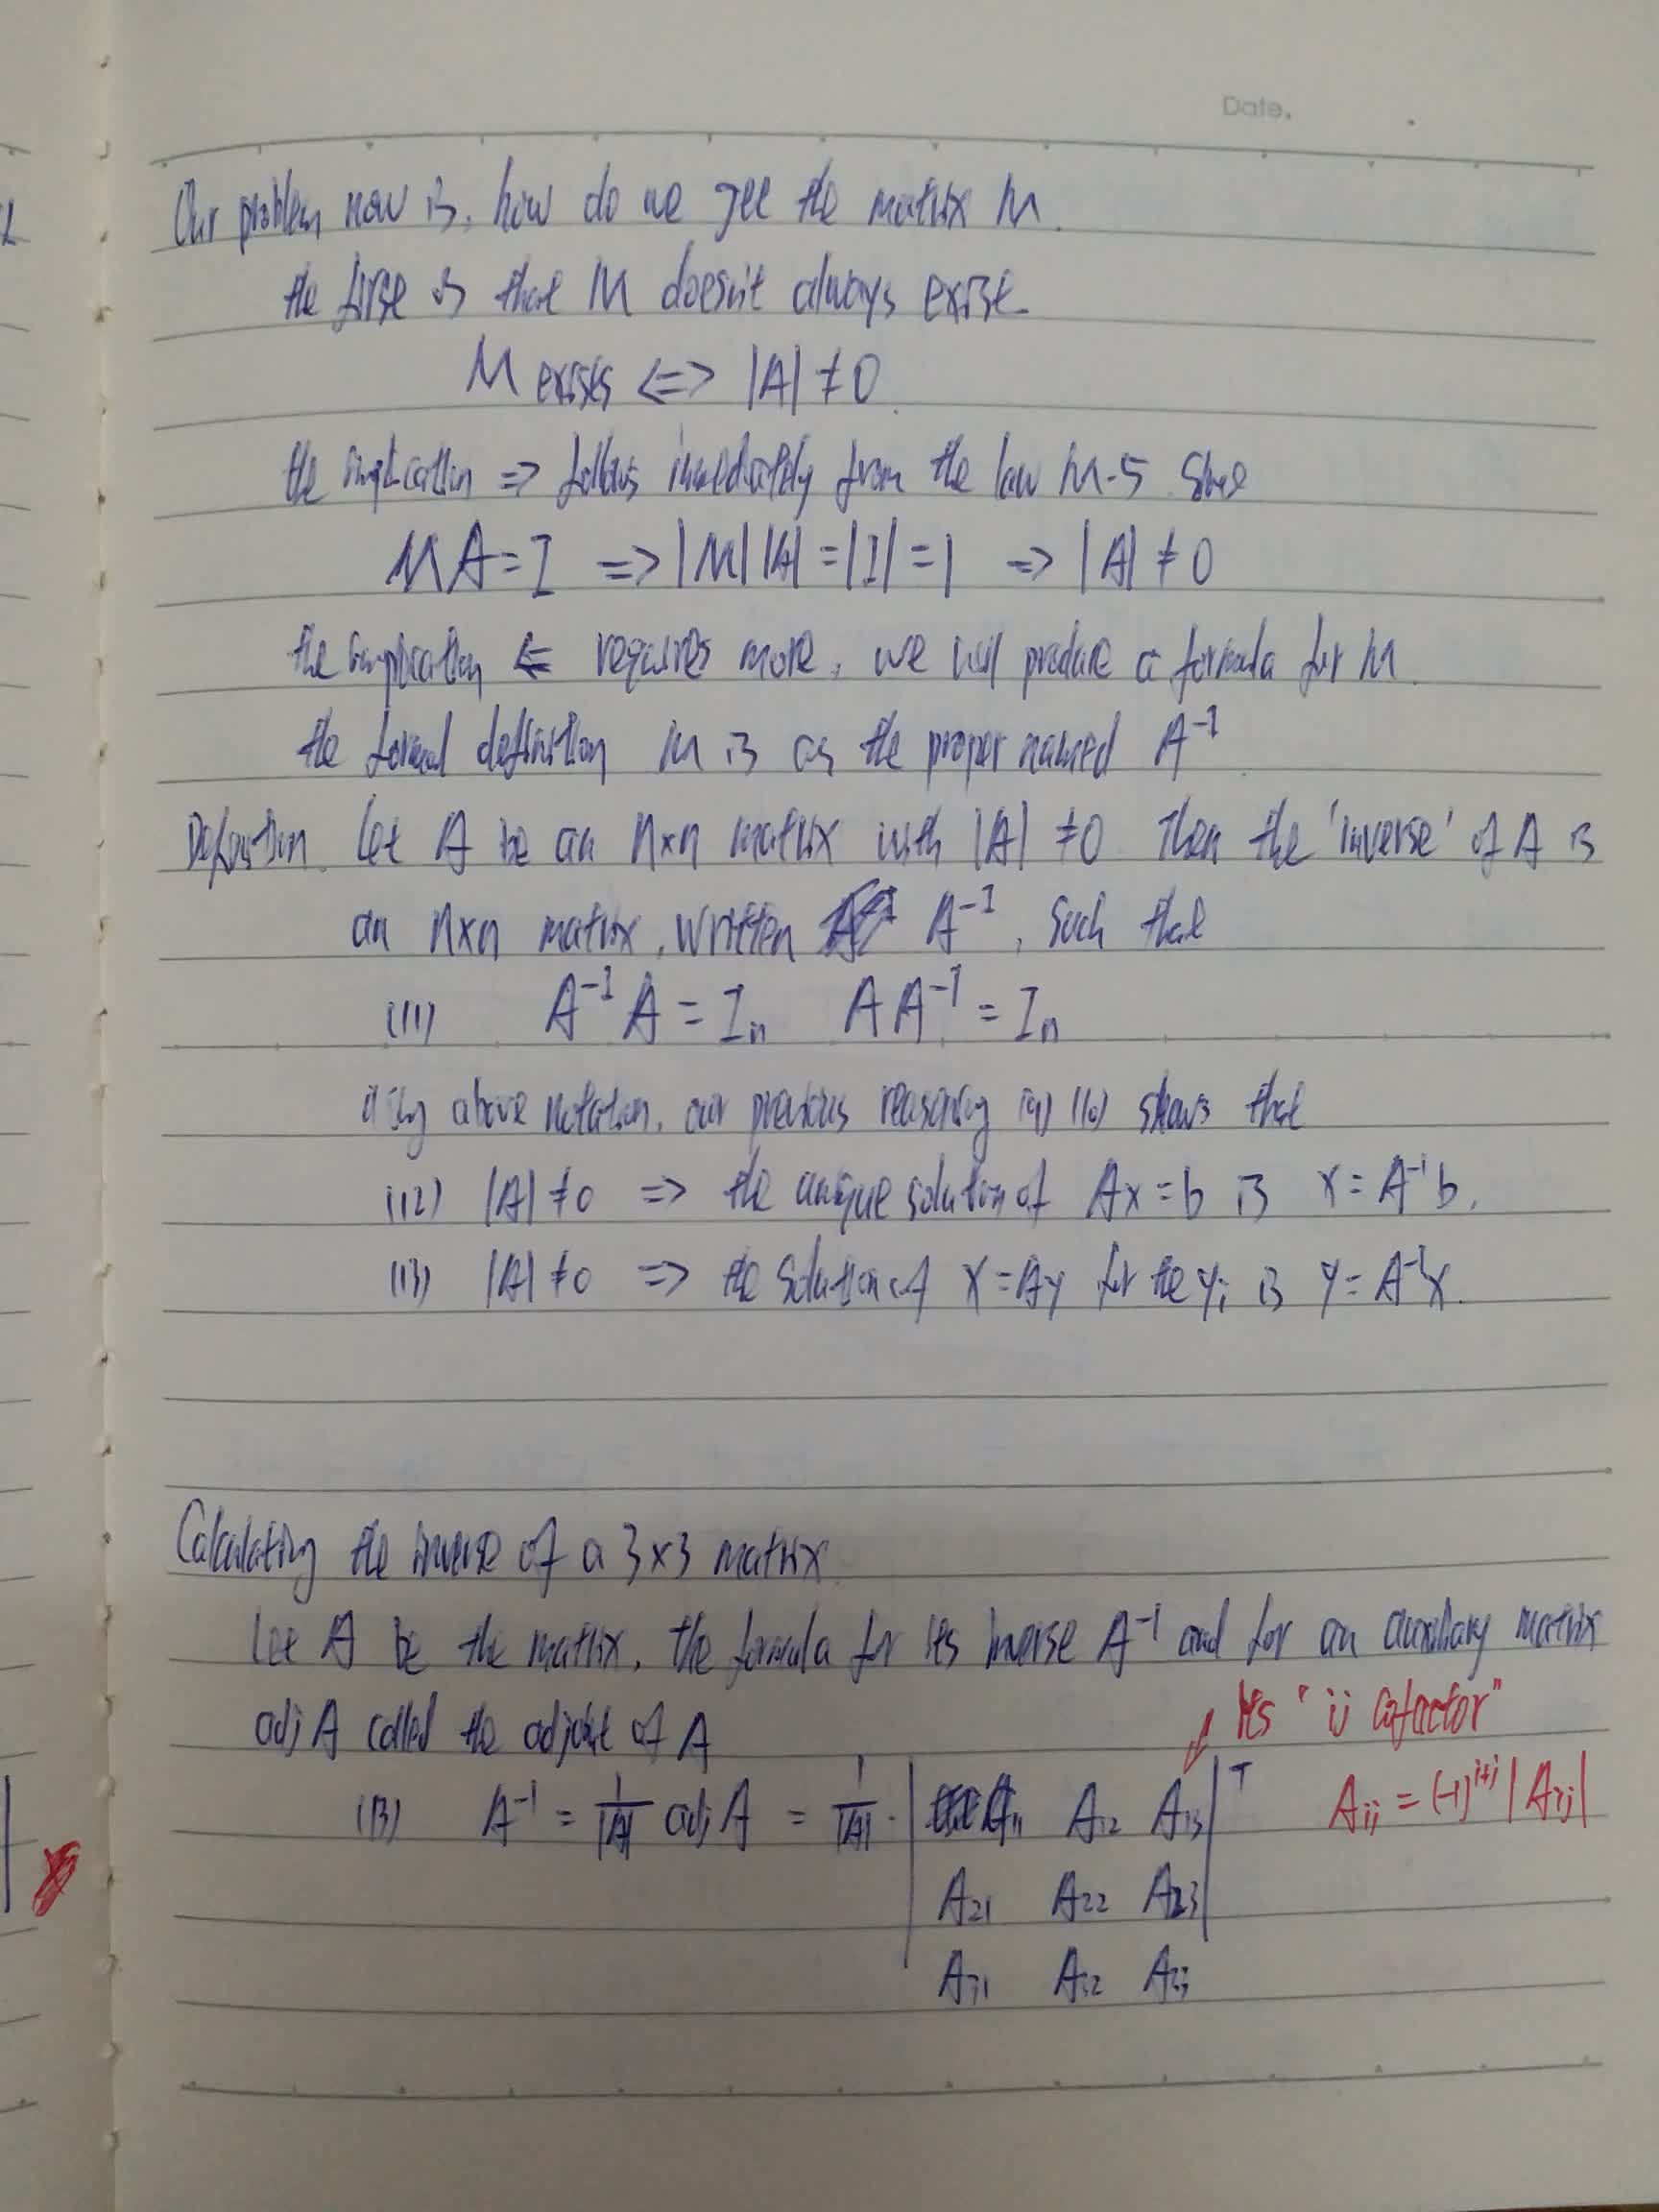 Date.
Our problem now is, how do we get the matrix M.
the first is that M doesn't always exist.
M exists <=> |A| ≠ 0.
the implication => follows immediately from the law M-5 since
MA = I => |M| |A| = |I| = 1 => |A| ≠ 0
the implication <= requires more, we will produce a formula for M.
the formal definition M is as the proper named A⁻¹
Definition. Let A be an n×n matrix with |A| ≠ 0. Then the 'inverse' of A is
an n×n matrix, written A⁻¹, such that
(11) A⁻¹A = Iₙ AA⁻¹ = Iₙ
using above notation, our previous reasoning (9) (10) shows that
(12) |A| ≠ 0 => the unique solution of Ax = b is x = A⁻¹b.
(13) |A| ≠ 0 => the solution of x = Ay for the yᵢ is y = A⁻¹x.
Calculating the inverse of a 3×3 matrix.
Let A be the matrix, the formula for its inverse A⁻¹ and for an auxiliary matrix
adj A called the adjoint of A
its "ij cofactor"
(13) A⁻¹ = 1/|A| adj A = 1/|A| · | A₁₁ A₁₂ A₁₃ |ᵀ Aij = (-1)^i+j |Aij|
A₂₁ A₂₂ A₂₃
A₃₁ A₃₂ A₃₃